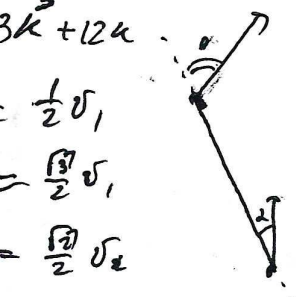 3k² + 12k
= 1/2 v₁
= √3/2 v₁
= √2/2 v₂
θ
2